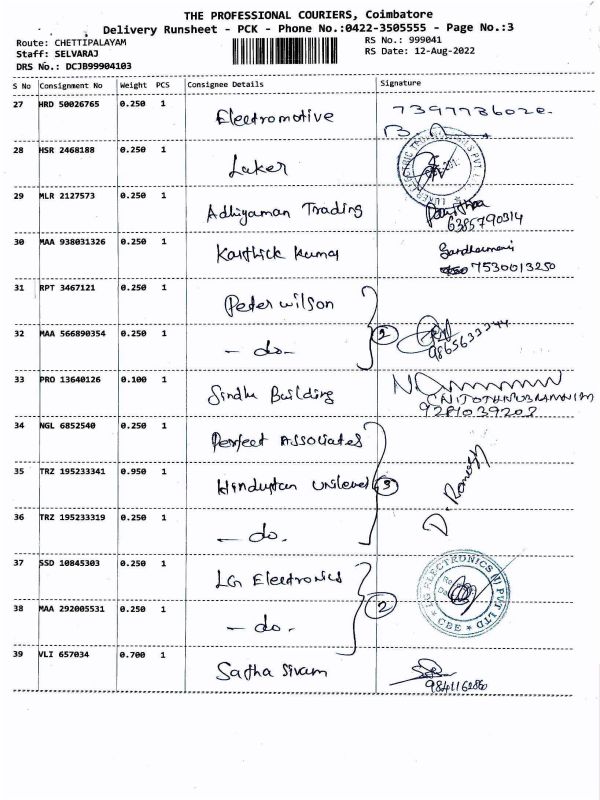 THE PROFESSIONAL COURIERS, Coimbatore
Delivery Runsheet - PCK - Phone No.:0422-3505555 - Page No.:3
Route: CHETTIPALAYAM RS No.: 999041
Staff: SELVARAJ RS Date: 12-Aug-2022
DRS No.: DCJB99904103
S No Consignment No Weight PCS Consignee Details Signature
27 HRD 50026765 0.250 1 Electromotive
28 HSR 2468188 0.250 1 Luker
29 MLR 2127573 0.250 1 Adhiyaman Trading
6385790314
30 MAA 938031326 0.250 1 Karthick Kumar
7530013250
31 RPT 3467121 0.250 1 Peter wilson
32 MAA 566890354 0.250 1 - do - 2
9865633344
33 PRO 13640126 0.100 1 Sindhu Building
34 NGL 6852540 0.250 1 Perfect Associates
35 TRZ 195233341 0.950 1 Hindustan unilever 3
D. Ramesh
36 TRZ 195233319 0.250 1 - do.
37 SSD 10845303 0.250 1 LG Electronics
LG ELECTRONICS (I) PVT LTD
* CBE *
38 MAA 292005531 0.250 1 - do - 2
39 VLI 657034 0.700 1 Satha Sivam